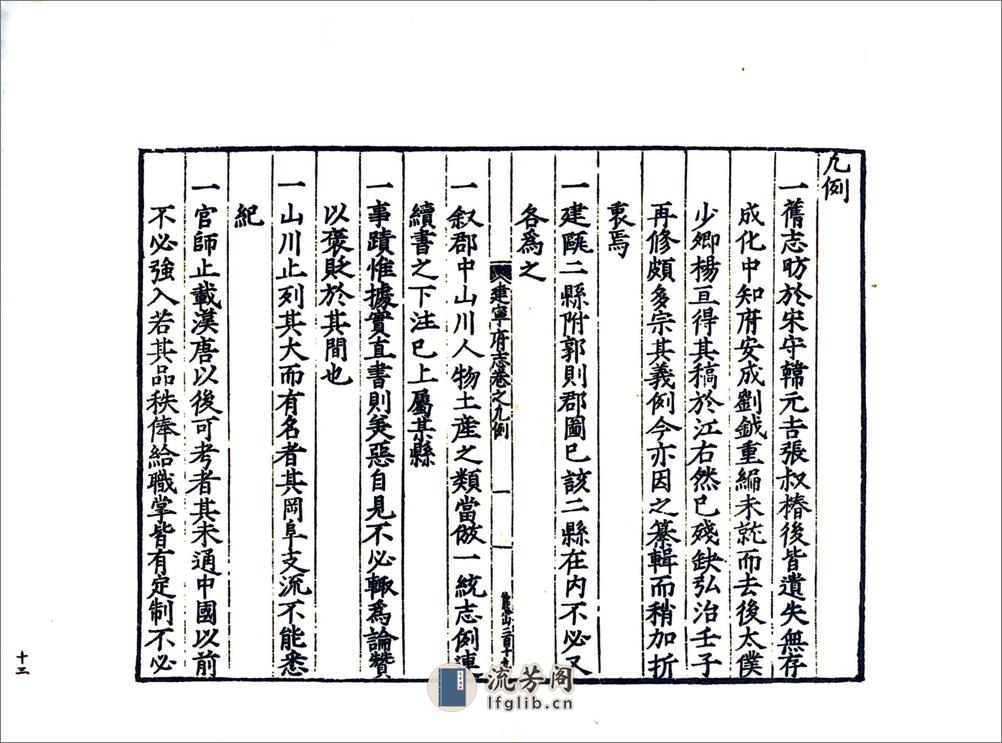 凡例
一舊志昉於宋守韓元吉張叔椿後皆遺失無存
成化中知府安成劉鉞重編未就而去後太僕
少卿楊亘得其稿於江右然已殘缺弘治壬子
再修頗多宗其義例今亦因之纂輯而稍加折
衷焉
一建甌二縣附郭則郡圖已該二縣在内不必又
各爲之
建寧府志卷之九例
一
一叙郡中山川人物土産之類當倣一統志例連
續書之下注已上屬某縣
一事蹟惟據實直書則美惡自見不必輒爲論贊
以褒貶於其間也
一山川止列其大而有名者其岡阜支流不能悉
紀
一官師止載漢唐以後可考者其未通中國以前
不必強入若其品秩俸給職掌皆有定制不必
十三
流芳阁
lfglib.cn